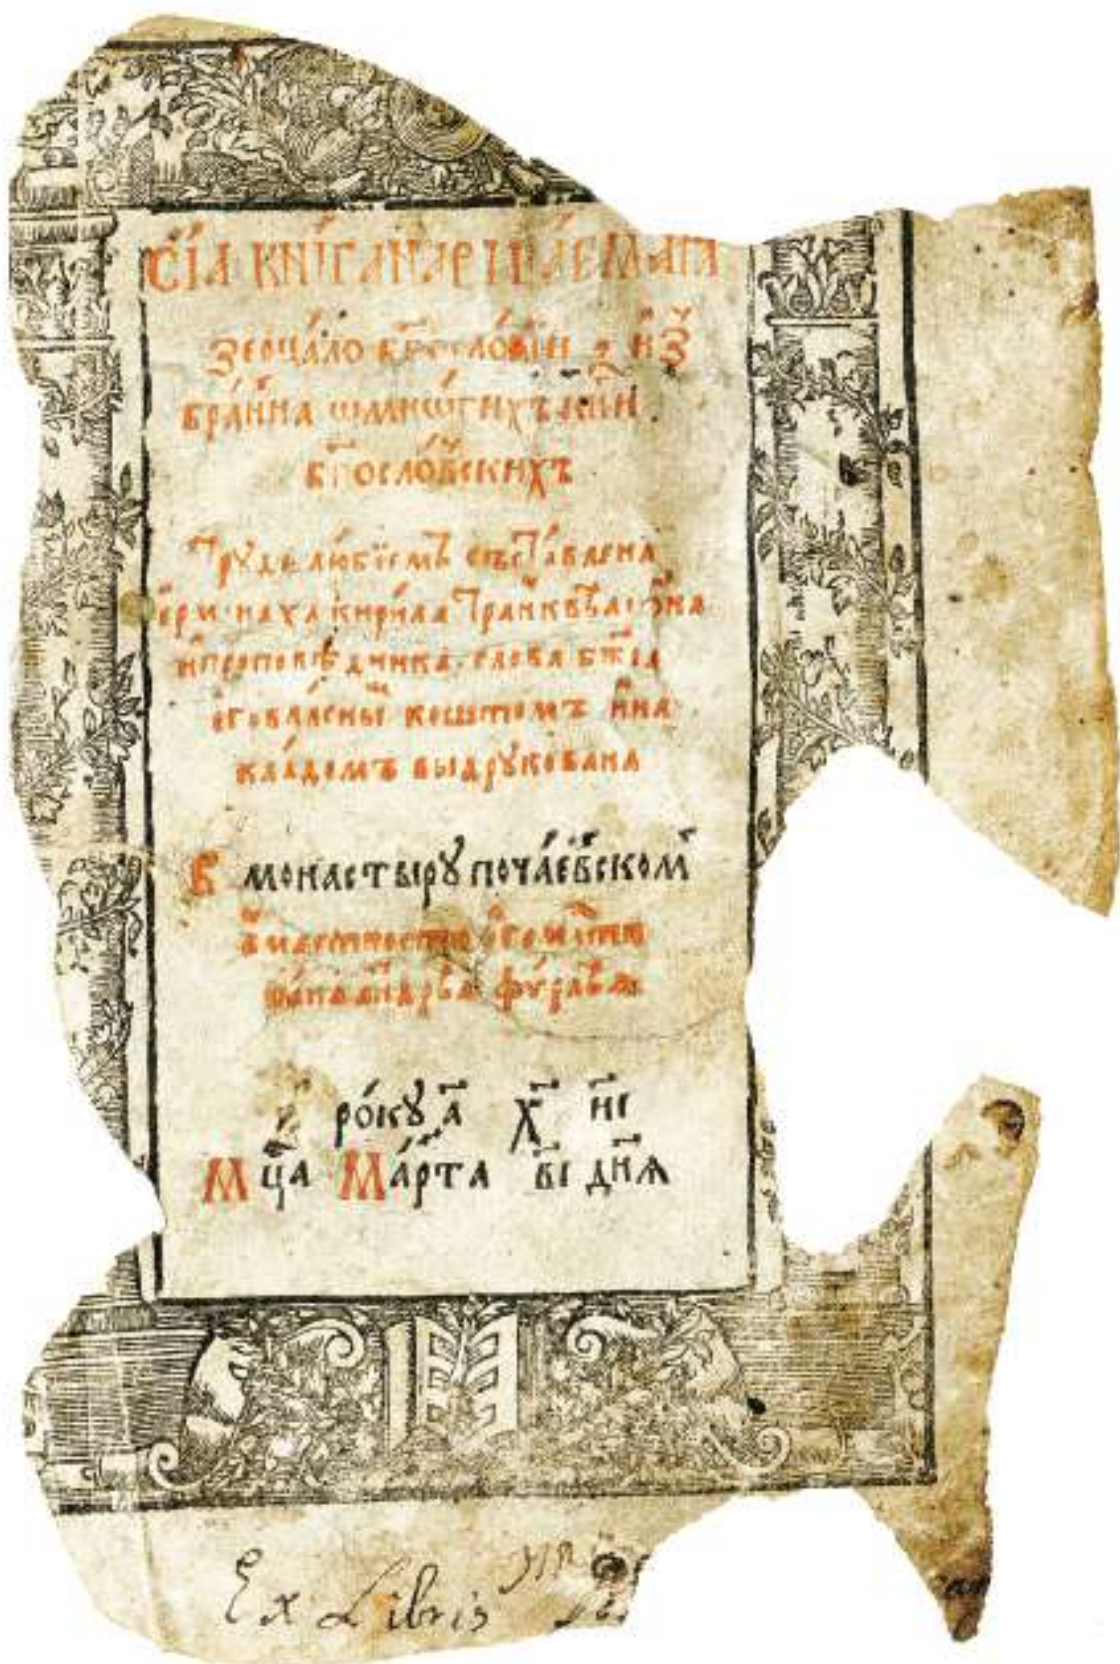 СїѦ КНИ́ГА НАРИЦА́ЕМАꙖ
Зерца́ло бг҃осло́вїи, и҆з̾
бра́нна ѿ мнѡ́гихъ кни́г
бг҃осло́вскихъ
трꙋделю́бїемъ съста́влена
і҆ермонаха кири́ла транкви́лїѡна
и҆ проповѣ́дника слова бж҃їа
кошто́мъ и҆ на
кла́домъ выдрꙋкована
В монастырꙋ поча́евском
рокꙋ ҂а҃ х҃ и҃і
Мц҃а Ма́рта в҃і дн҃ѧ
Ex Libris